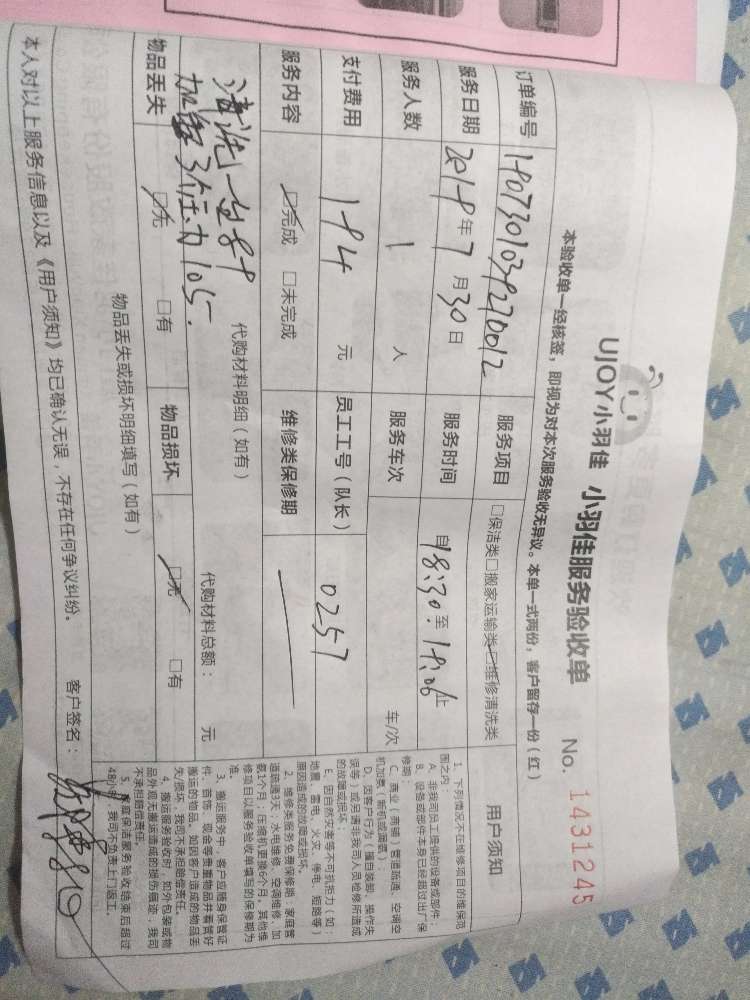 UJOY小羽佳 小羽佳服务验收单 No. 1431245
本验收单一经核签，即视为对本次服务验收无异议。本单一式两份，客户留存一份（红）
订单编号 服务项目 □保洁类□搬家运输类□维修清洗类
服务日期 2018年7月30日 服务时间 自18:30至 止
服务人数 1 人 服务车次 车/次
支付费用 184 元 员工工号（队长） 0257
服务内容 □完成 □未完成 维修类保修期
清洗一台
代购材料明细（如有） 代购材料总额： 元
物品丢失 □无 □有 物品损坏 □无 □有
物品丢失或损坏明细填写（如有）
本人对以上服务信息以及《用户须知》均已确认无误，不存在任何争议纠纷。 客户签名：
用户须知
1、下列情况不在维修项目的维保范
围之内
A、非我司员工提供的设备或部件；
B、设备或部件本身已经超过出厂保
修期；
C、商业（商铺）管道疏通、空调空
机加氨（新机或漏氨）；
D、因客户行为（擅自装卸、操作失
误等）或已请非我司人员检修所造成
的故障或损坏；
E、因自然灾害等不可抗力（如：
地震、雷电、火灾、停电、短路等）
原因造成的故障或损坏。
2、维修类服务免费保修期：家庭管
道疏通3天；水电维修、空调维修、加
氨1个月；压缩机更换6个月，其他维
修项目以服务验收单填写的保修期为
准。
3、搬运服务中，客户应随身保管证
件、首饰、现金等贵重物品并看管好
搬运的物品。如因客户造成的物品丢
失/损坏，我司不承担赔偿责任。
4、搬运服务验收时，如外包装或物
品外观无搬运造成的损伤痕迹，我司
不承担赔偿责任。
5、家庭保洁服务验收结束后超过
48小时，我司不负责上门返工。